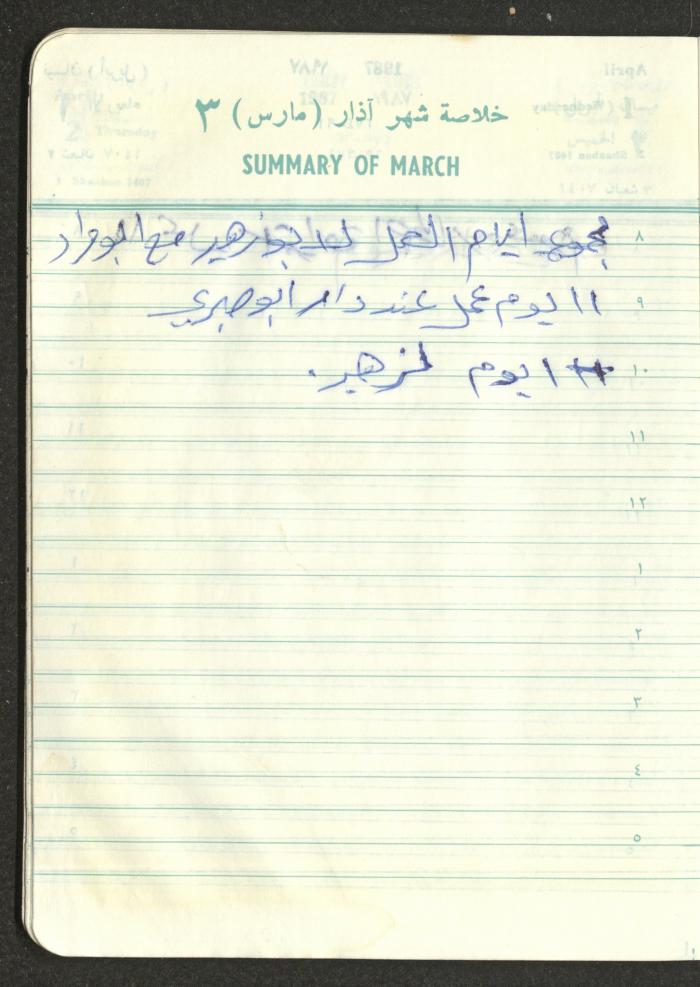 خلاصة شهر آذار (مارس) ٣
SUMMARY OF MARCH
٨ مجموع ايام العمل لدابوزهير مع ابو مراد
٩ ١١ يوم عمل عند دار ابو صبري
١٠ ١ يوم لزهير.
١١
١٢
١
٢
٣
٤
٥